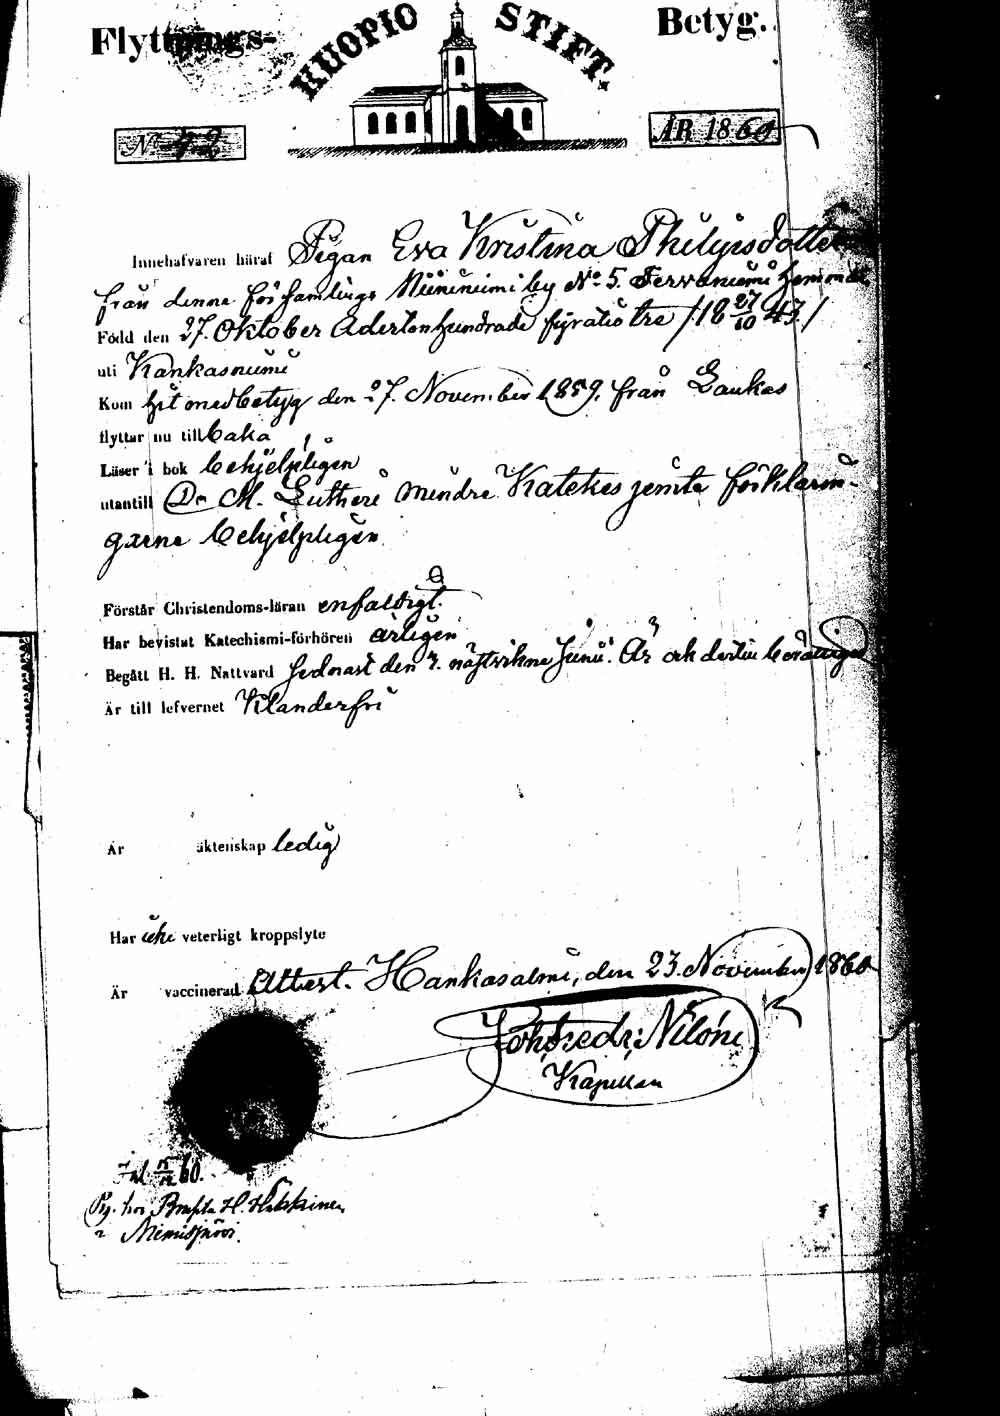 Flyttnings- KUOPIO STIFT. Betyg.
No 72 ÅR 1860
Innehafvaren häraf Pigan Eva Kristina Philipsdotter
från denna församlings Niininiemi by No 5. Tervaniemi hemman
Född den 27. Oktober Adertonhundrade fyratio tre /18 27/10 43./
uti Kankasniemi
Kom hit med betyg den 27. November 1859. från Laukas
flyttar nu tillbaka
Läser i bok behjelpligen
utantill Dr M. Lutheri mindre Katekes jemte förklarin-
garne behjelpligen
Förstår Christendoms-läran enfaldigt.
Har bevistat Katechismi-förhören årligen
Begått H. H. Nattvard sednast den 3. näftvikne Junii. Är och dertill berättigad
Är till lefvernet Klanderfri
Är äktenskap ledig
Har icke veterligt kroppslyte
Är vaccinerad. Attest. Hankasalmi, den 23. November 1860
Joh. Fredr. Nilón
Kapellan
Inl. 15/12 60.
Pig. hos H. Häkkinen
Niemisjärvi.